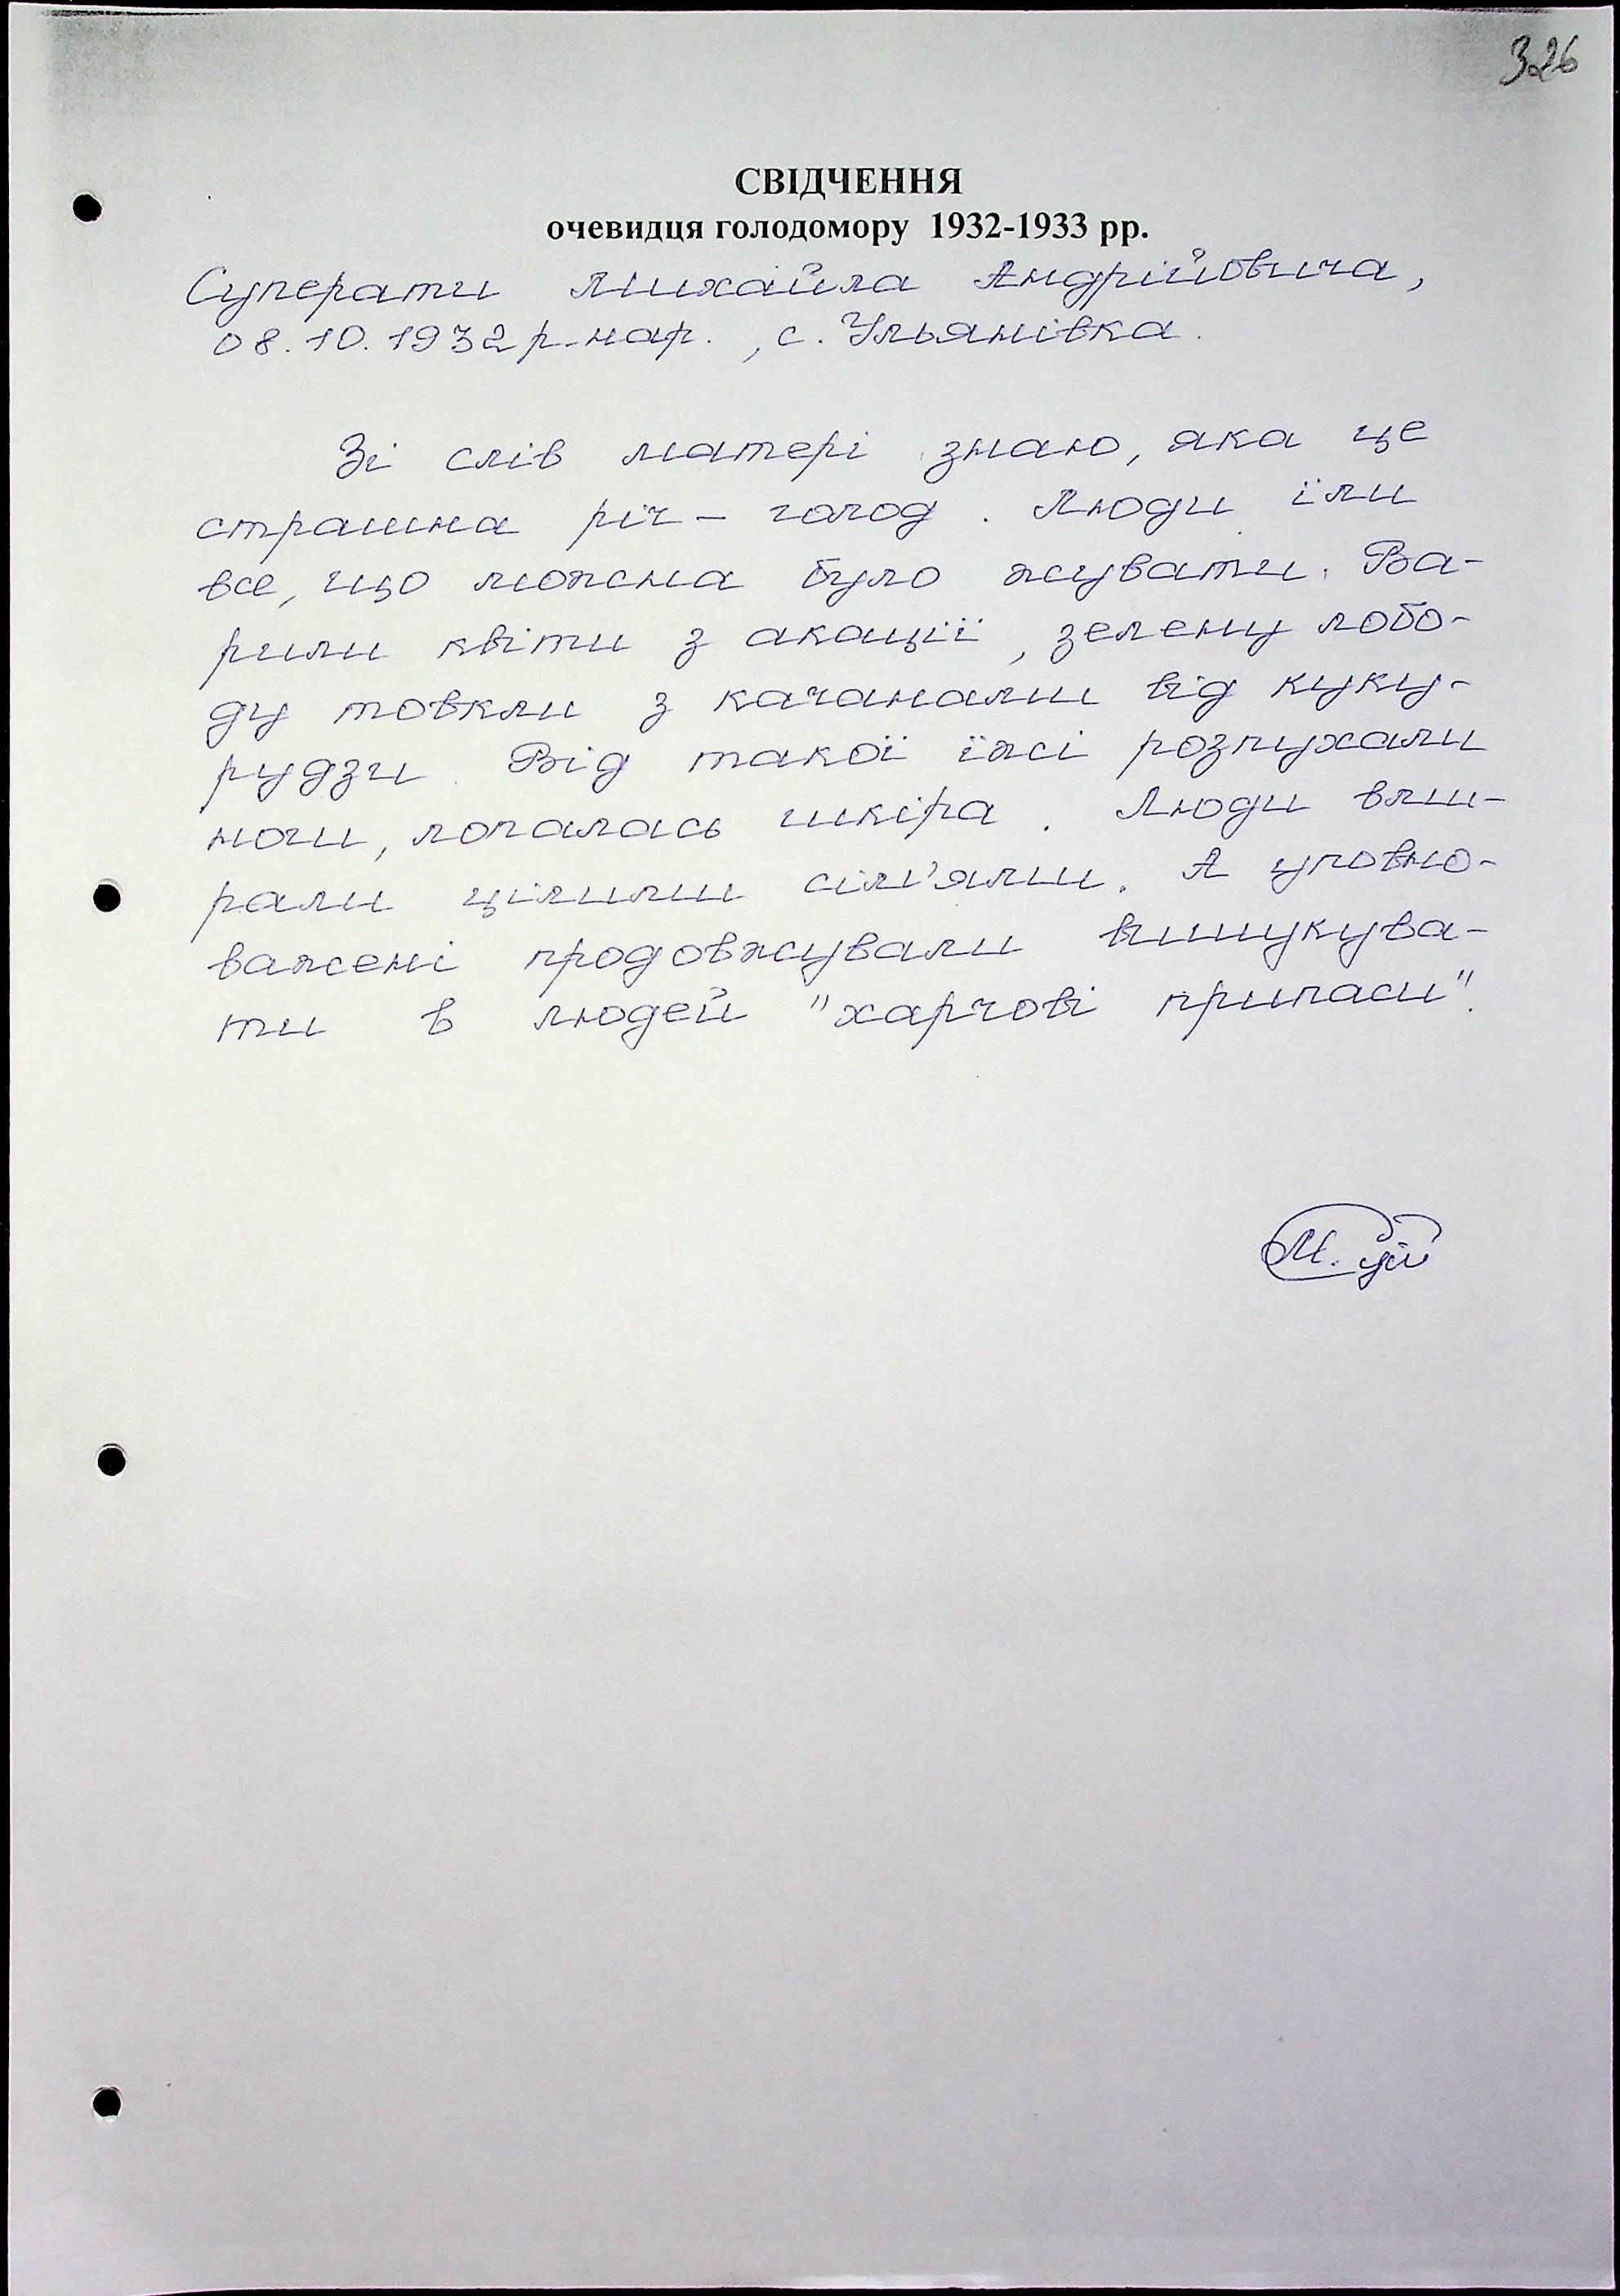 326
СВІДЧЕННЯ
очевидця голодомору 1932-1933 рр.
Суперати Михайла Андрійовича,
08.10.1932 р. нар., с. Ульянівка.
Зі слів матері знаю, яка це
страшна річ – голод. Люди їли
все, що можна було жувати. Ва-
рили квіти з акації, зелену лобо-
ду товкли з качанами від куку-
рудзи. Від такої їжі розпухали
ноги, лопалась шкіра. Люди вми-
рали цілими сім'ями. А уповно-
важені продовжували вишукува-
ти в людей "харчові припаси".